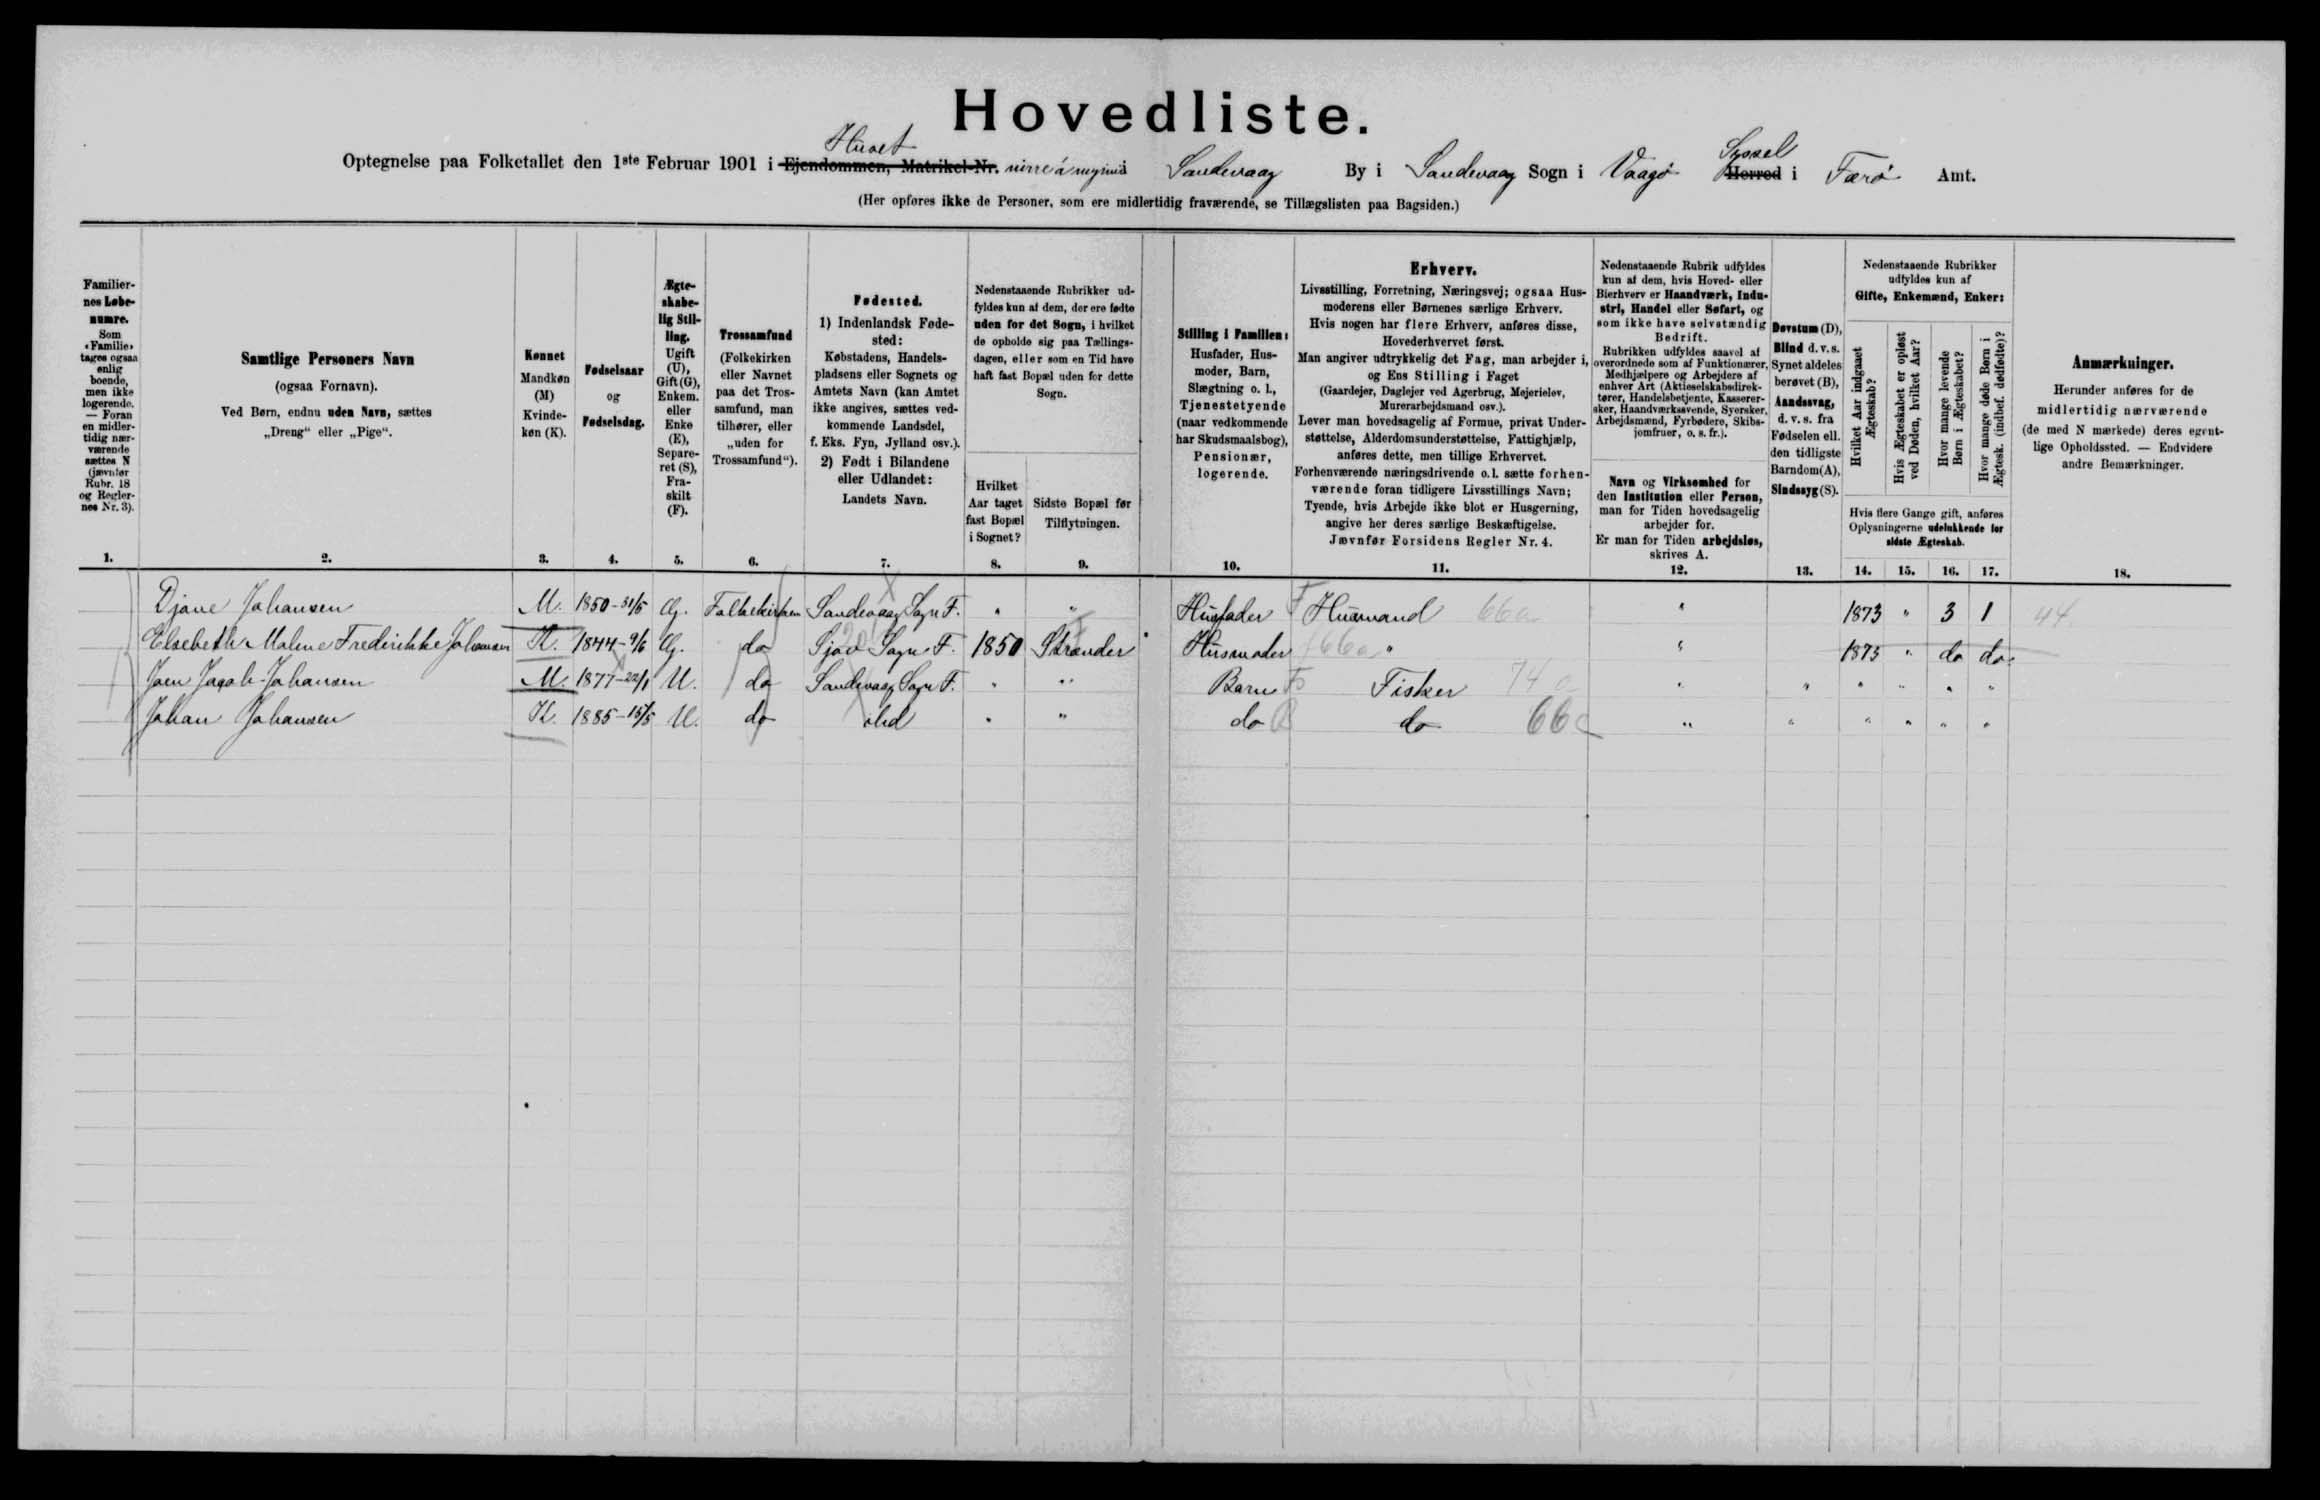 Hovedliste.
Huset
Syssel
Optegnelse paa Folketallet den 1ste Februar 1901 i Ejendommen, Matrikel-Nr. Sandevaag By i Sandevaag Sogn i Vaagø Herred i Færø Amt.
(Her opføres ikke de Personer, som ere midlertidig fraværende, se Tillægslisten paa Bagsiden.)
Familiernes Løbenumre.
Som «Familie» tages ogsaa enlig boende, men ikke logerende. — Foran en midlertidig nærværende sættes N (jævnfør Rubr. 18 og Reglernes Nr. 3).
1.
Samtlige Personers Navn
(ogsaa Fornavn).
Ved Børn, endnu uden Navn, sættes
„Dreng“ eller „Pige“.
2.
Kønnet
Mandkøn (M)
Kvindekøn (K).
3.
Fødselsaar
og
Fødselsdag.
4.
Ægteskabelig Stilling.
Ugift (U), Gift (G), Enkem. eller Enke (E), Separeret (S), Fraskilt (F).
5.
Trossamfund
(Folkekirken eller Navnet paa det Trossamfund, man tilhører, eller „uden for Trossamfund“).
6.
Fødested.
1) Indenlandsk Fødested:
Købstadens, Handelspladsens eller Sognets og Amtets Navn (kan Amtet ikke angives, sættes vedkommende Landsdel, f. Eks. Fyn, Jylland osv.).
2) Født i Bilandene eller Udlandet:
Landets Navn.
7.
Nedenstaaende Rubrikker udfyldes kun af dem, der ere fødte uden for det Sogn, i hvilket de opholde sig paa Tællingsdagen, eller som en Tid have haft fast Bopæl uden for dette Sogn.
Hvilket Aar taget fast Bopæl i Sognet?
8.
Sidste Bopæl før Tilflytningen.
9.
Stilling i Familien:
Husfader, Husmoder, Barn, Slægtning o. l., Tjenestetyende (naar vedkommende har Skudsmaalsbog), Pensionær, logerende.
10.
Erhverv.
Livsstilling, Forretning, Næringsvej; ogsaa Husmoderens eller Børnenes særlige Erhverv.
Hvis nogen har flere Erhverv, anføres disse, Hovederhvervet først.
Man angiver udtrykkelig det Fag, man arbejder i, og Ens Stilling i Faget
(Gaardejer, Daglejer ved Agerbrug, Mejerielev, Murerarbejdsmand osv.).
Lever man hovedsagelig af Formue, privat Understøttelse, Alderdomsunderstøttelse, Fattighjælp, anføres dette, men tillige Erhvervet.
Forhenværende næringsdrivende o. l. sætte forhenværende foran tidligere Livsstillings Navn; Tyende, hvis Arbejde ikke blot er Husgerning, angive her deres særlige Beskæftigelse.
Jævnfør Forsidens Regler Nr. 4.
11.
Nedenstaaende Rubrik udfyldes kun af dem, hvis Hoved- eller Bierhverv er Haandværk, Industri, Handel eller Søfart, og som ikke have selvstændig Bedrift.
Rubrikken udfyldes saavel af overordnede som af Funktionærer, Medhjælpere og Arbejdere af enhver Art (Aktieselskabsdirektører, Handelsbetjente, Kasserersker, Haandværkssvende, Syersker, Arbejdsmænd, Fyrbødere, Skibsjomfruer, o. s. fr.).
Navn og Virksomhed for den Institution eller Person, man for Tiden hovedsagelig arbejder for.
Er man for Tiden arbejdsløs, skrives A.
12.
Døvstum (D), Blind d. v. s. Synet aldeles berøvet (B), Aandssvag, d. v. s. fra Fødselen ell. den tidligste Barndom (A), Sindssyg (S).
13.
Nedenstaaende Rubrikker udfyldes kun af
Gifte, Enkemænd, Enker:
Hvilket Aar indgaaet Ægteskab?
Hvis Ægteskabet er opløst ved Døden, hvilket Aar?
Hvor mange levende Børn i Ægteskabet?
Hvor mange døde Børn i Ægtesk. (indbef. dødfødte)?
Hvis flere Gange gift, anføres Oplysningerne udelukkende for sidste Ægteskab.
14. 15. 16. 17.
Anmærkninger.
Herunder anføres for de midlertidig nærværende (de med N mærkede) deres egentlige Opholdssted. — Endvidere andre Bemærkninger.
18.
Djone Johansen M. 1850-31/5 G. Folkekirken Sandevaag Sogn F. " " Husfader F Husmand 66a " 1873 " 3 1 44
Elsebeth Malene Frederikke Johansen K. 1844-9/6 G. do Sjov Sogn F. 1850 Strender Husmoder 66a " " 1873 " do do
Joen Jacob Johansen M. 1877-22/1 U. do Sandevaag Sogn F. " " Barn Fo Fisker 74 a " " " " " "
Johan Johansen K. 1885-15/5 U. do ibid " " do B do 66c " " " " " "